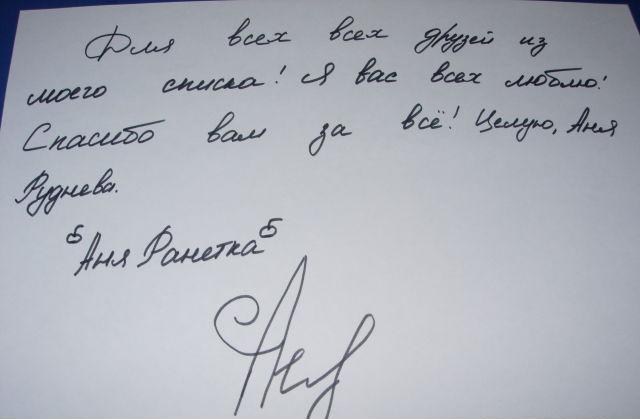 Для всех всех друзей из
моего списка! Я вас всех люблю!
Спасибо вам за всё! Целую, Аня
Руднева.
Б Аня Ранетка Б